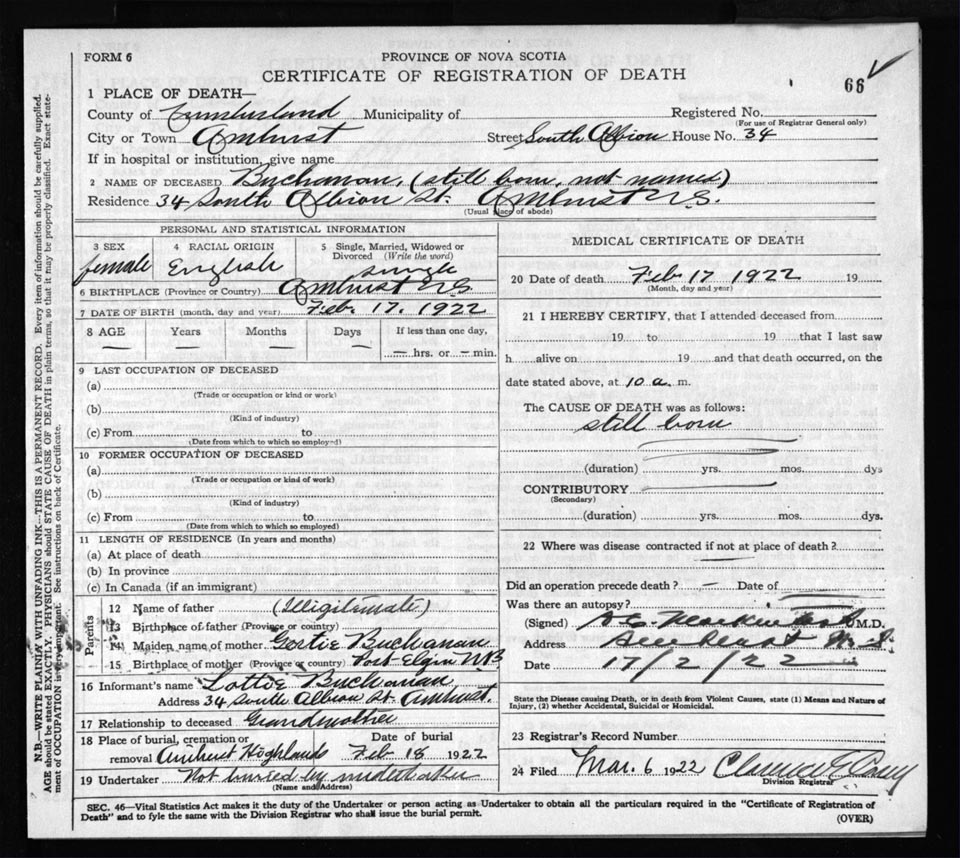 FORM 6
PROVINCE OF NOVA SCOTIA
CERTIFICATE OF REGISTRATION OF DEATH
66
1 PLACE OF DEATH—
County of Cumberland Municipality of
Registered No.
(For use of Registrar General only)
City or Town Amherst Street South Albion House No. 34
If in hospital or institution, give name
2 NAME OF DECEASED Buchanan, (still born, not named)
Residence 34 South Albion St. Amherst N.S.
(Usual place of abode)
PERSONAL AND STATISTICAL INFORMATION
3 SEX 4 RACIAL ORIGIN 5 Single, Married, Widowed or Divorced (Write the word)
female English single
6 BIRTHPLACE (Province or Country) Amherst N.S.
7 DATE OF BIRTH (month, day and year) Feb. 17. 1922
8 AGE Years Months Days If less than one day,
— — — — — hrs. or — min.
9 LAST OCCUPATION OF DECEASED
(a)
(Trade or occupation or kind or work)
(b)
(Kind of industry)
(c) From to
(Date from which to which so employed)
10 FORMER OCCUPATION OF DECEASED
(a)
(Trade or occupation or kind of work)
(b)
(Kind of industry)
(c) From to
(Date from which to which so employed)
11 LENGTH OF RESIDENCE (In years and months)
(a) At place of death
(b) In province
(c) In Canada (if an immigrant)
Parents
12 Name of father (Illigitemate)
13 Birthplace of father (Province or country)
14 Maiden name of mother Gertie Buchanan
15 Birthplace of mother (Province or country) Port-Elgin NB
16 Informant's name Lottie Buchanan
Address 34 South Albion St. Amherst.
17 Relationship to deceased Grandmother
18 Place of burial, cremation or removal Amherst Highlands Date of burial Feb 18 1922
19 Undertaker Not buried by undertaker
(Name and Address)
MEDICAL CERTIFICATE OF DEATH
20 Date of death Feb 17 1922 19
(Month, day and year)
21 I HEREBY CERTIFY, that I attended deceased from
19 to 19 that I last saw
h alive on 19 and that death occurred, on the
date stated above, at 10 a. m.
The CAUSE OF DEATH was as follows:
still born
(duration) yrs. mos. dys
CONTRIBUTORY
(Secondary)
(duration) yrs. mos. dys.
22 Where was disease contracted if not at place of death?
Did an operation precede death? — Date of
Was there an autopsy?
(Signed) M.D.
Address Amherst N.S.
Date 17/2/22
State the Disease causing Death, or in death from Violent Causes, state (1) Means and Nature of
Injury, (2) whether Accidental, Suicidal or Homicidal.
23 Registrar's Record Number
24 Filed Mar. 6 1922 Clarence E
Division Registrar
SEC. 46—Vital Statistics Act makes it the duty of the Undertaker or person acting as Undertaker to obtain all the particulars required in the "Certificate of Registration of
Death" and to fyle the same with the Division Registrar who shall issue the burial permit.
(OVER)
N.B.—WRITE PLAINLY WITH UNFADING INK—THIS IS A PERMANENT RECORD. Every item of information should be carefully supplied.
AGE should be stated EXACTLY. PHYSICIANS should STATE CAUSE OF DEATH in plain terms, so that it may be properly classified. Exact state-
ment of OCCUPATION is very important. See instructions on back of Certificate.